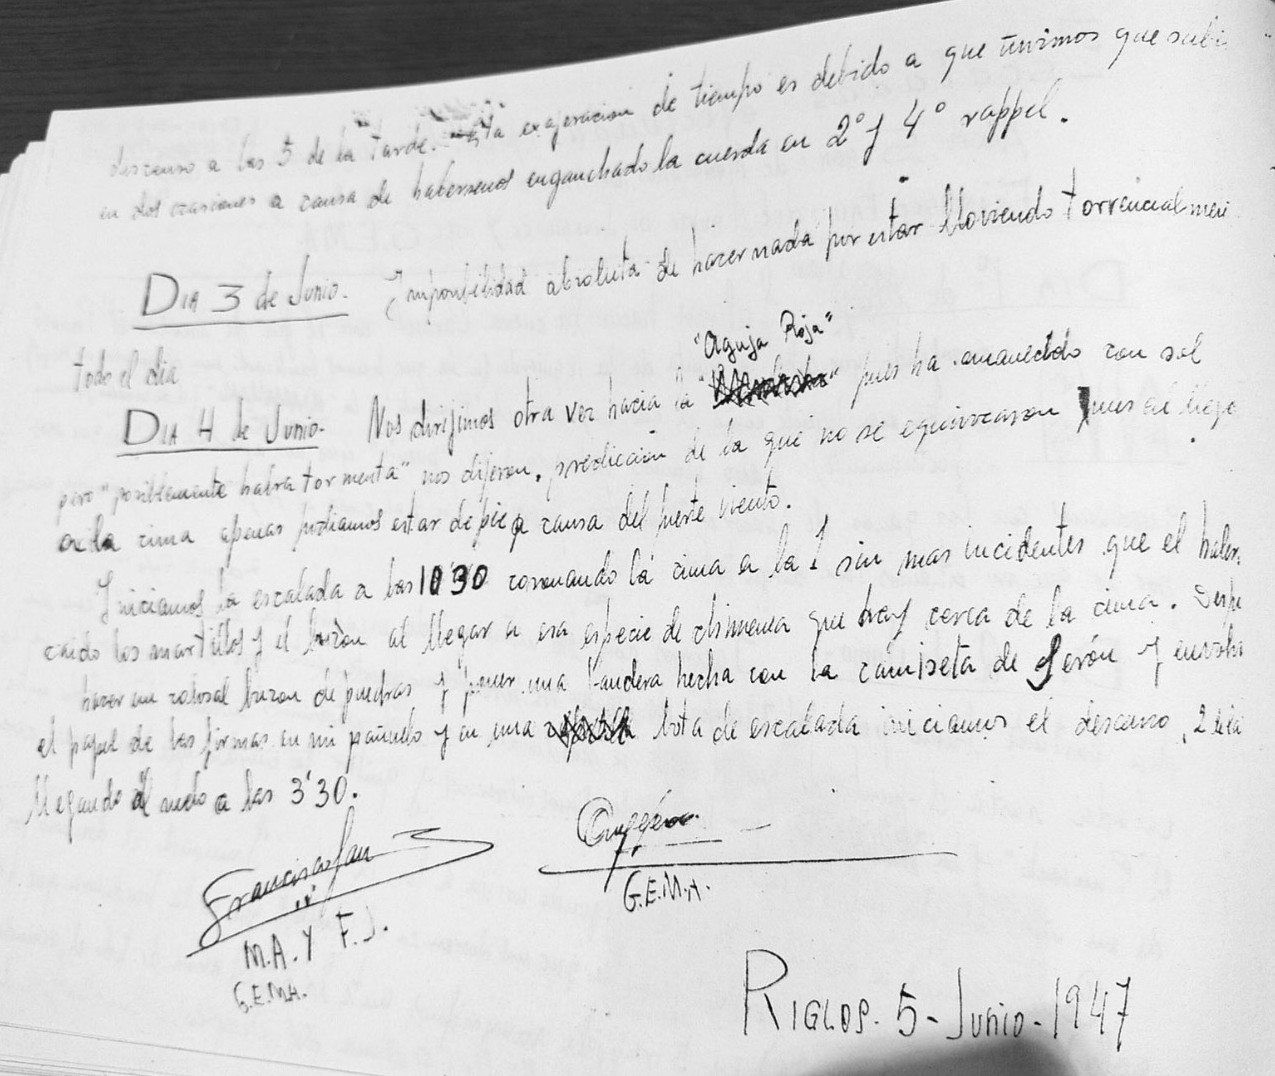 descenso a las 5 de la tarde. Esta exageracion de tiempo es debido a que tuvimos que subir
en dos ocasiones a causa de habersenos enganchado la cuerda en 2º y 4º rappel.
DIA 3 de Junio. Imposibilidad absoluta de hacer nada por estar lloviendo torrencialmen
todo el dia
"Aguja Roja"
DIA 4 de Junio. Nos dirijimos otra vez hacia la " " pues ha amanecido con sol
pero "posiblemente habra tormenta" nos dijeron, prediccion de la que no se equivocaron pues al llegar
a la cima apenas podiamos estar de pie a causa del fuerte viento.
Iniciamos la escalada a las 10'30 coronando la cima a la 1 sin mas incidentes que el haber
caido los martillos y el buzon al llegar a esa especie de chimenea que hay cerca de la cima. Despu
hacer un colosal buzon de piedras y poner una bandera hecha con la camiseta de Serón y envolv
el papel de las firmas en mi pañuelo y en una bota de escalada iniciamos el descenso,
llegando al suelo a las 3'30.
Francisco
M.A. Y F.J.
G.E.M.A.
G.E.M.A.
RIGLOS. 5 - Junio - 1947